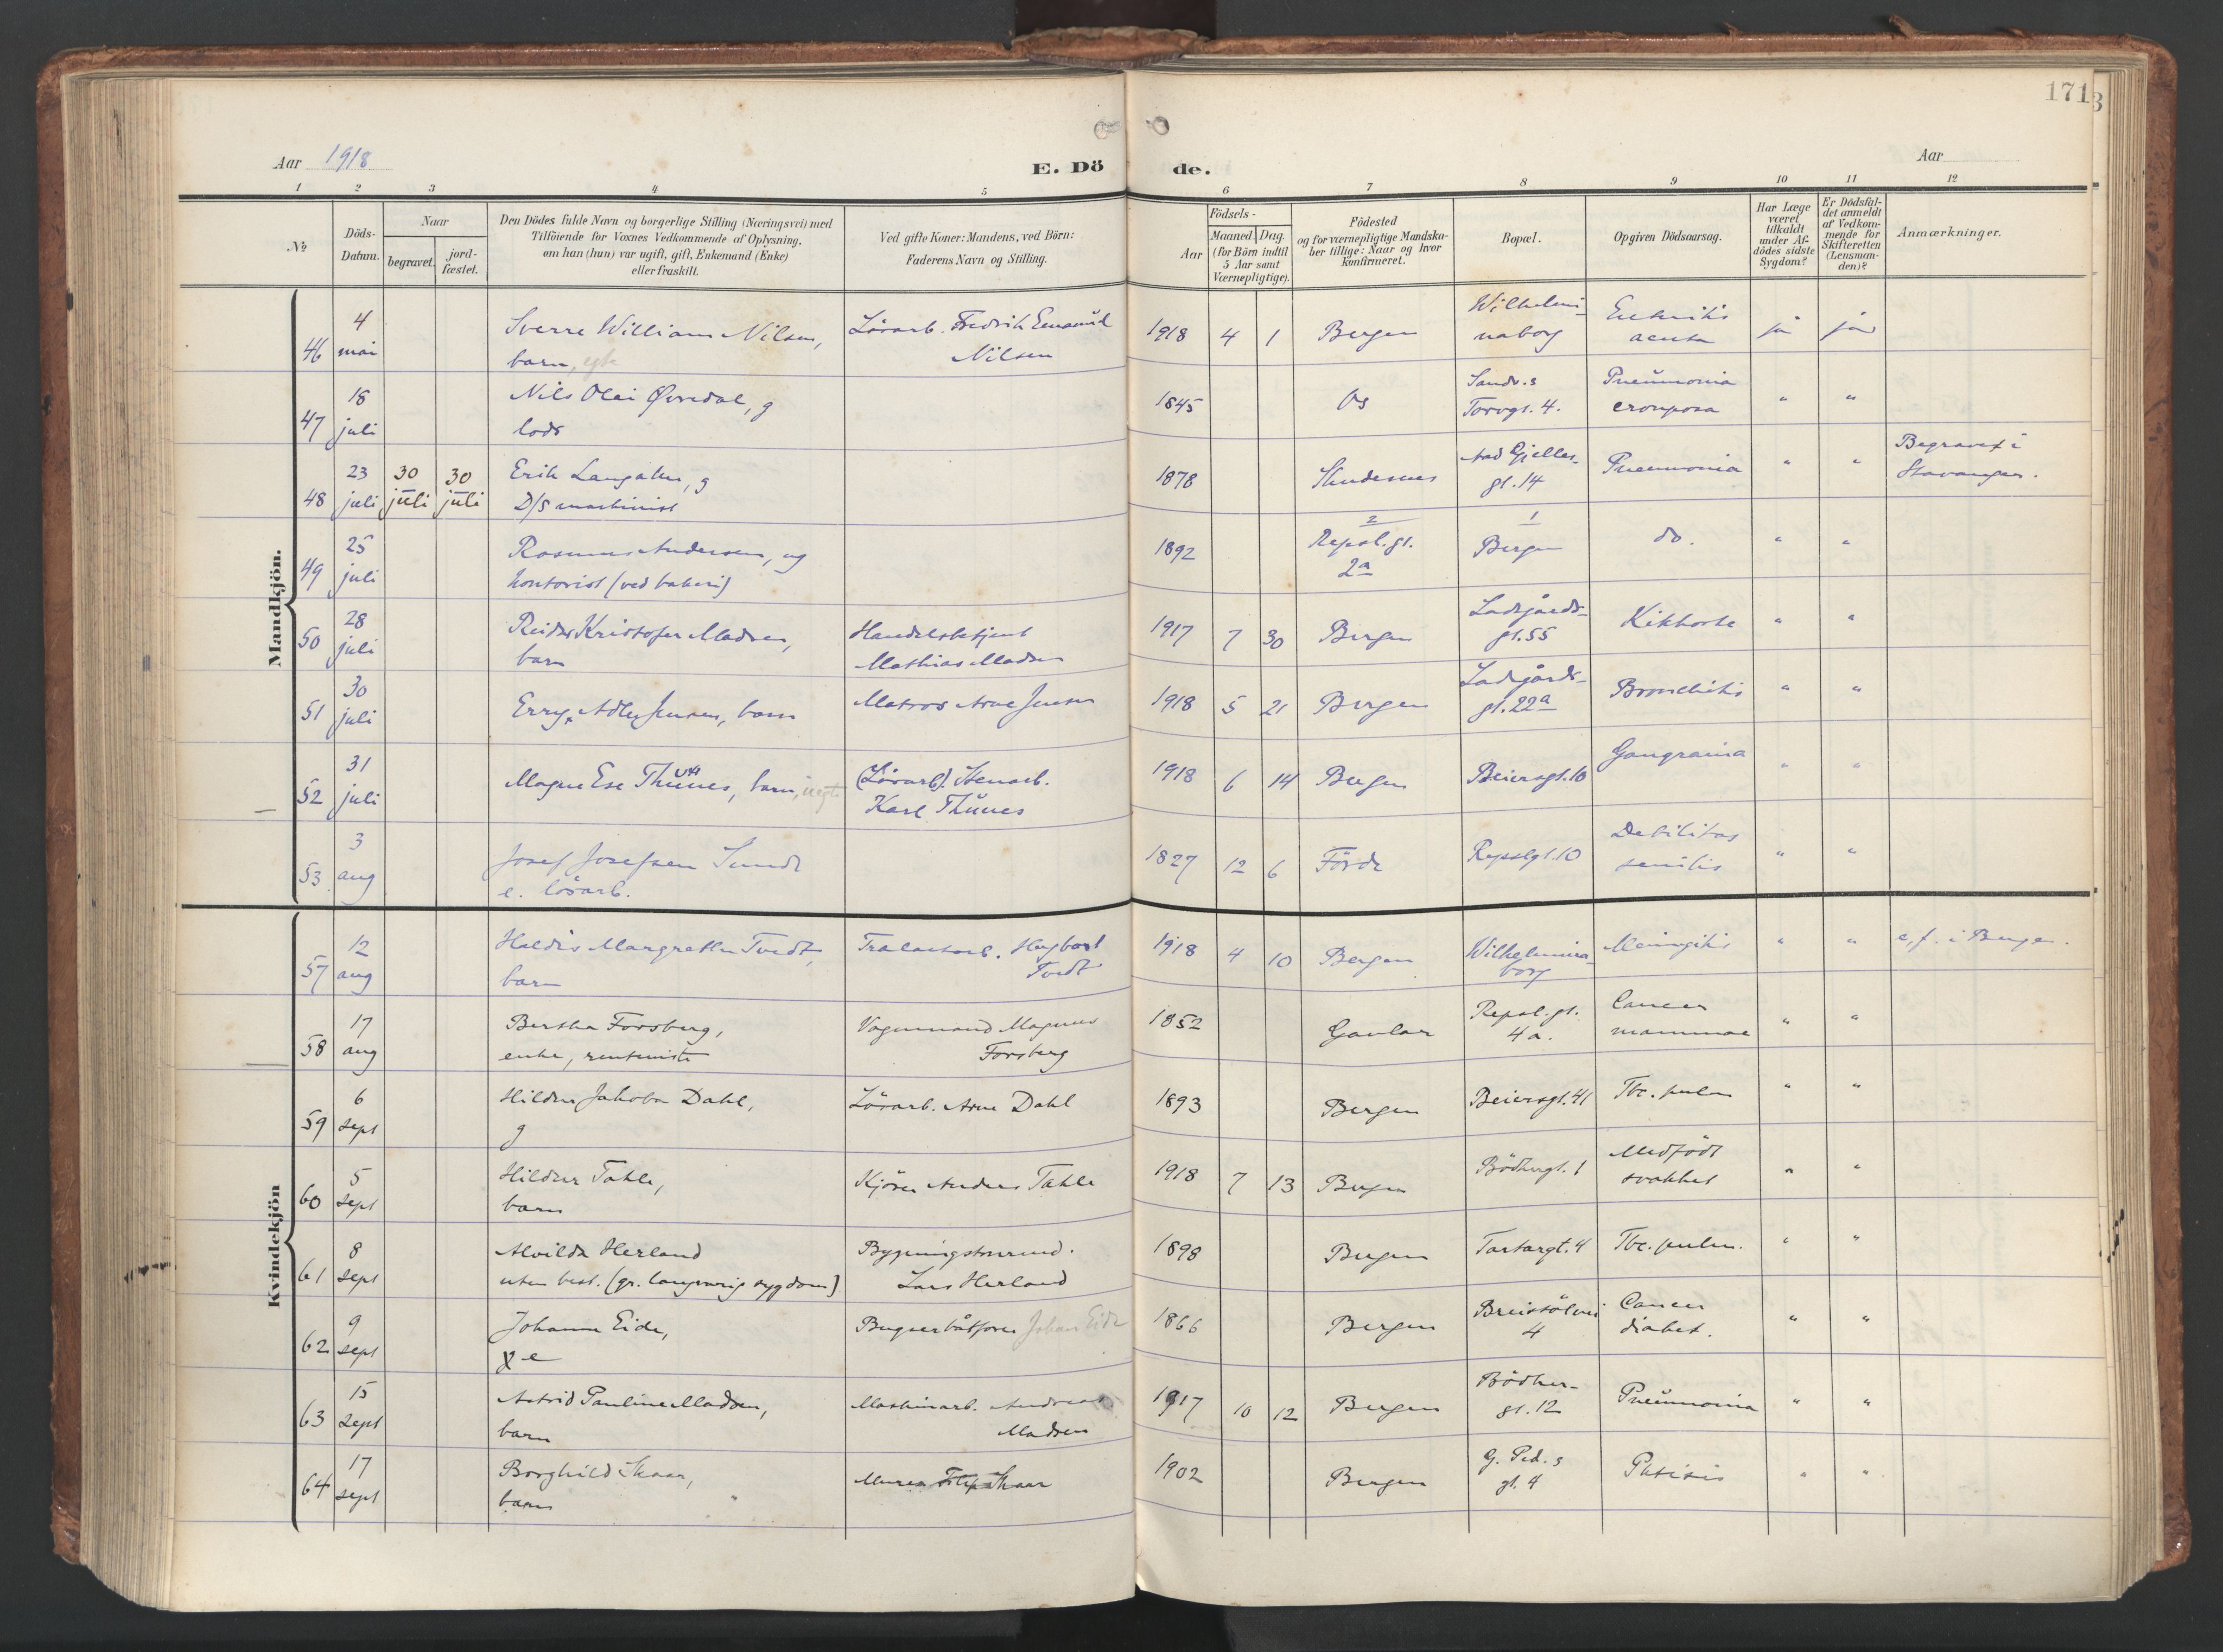 171
3
Aar 1918
E. Dö
de.
Aar
1 2 3 4 5 6 7 8 9 10 11 12
№
Döds-
Datum.
Naar
begravet.
jord-
fæstet.
Den Dödes fulde Navn og borgerlige Stilling (Næringsvei) med
Tilföiende for Voxnes Vedkommende af Oplysning,
om han (hun) var ugift, gift, Enkemand (Enke)
eller fraskilt.
Ved gifte Koner: Mandens, ved Börn:
Faderens Navn og Stilling.
Födsels-
Aar
Maaned.
Dag.
(for Börn indtil
5 Aar samt
Værnepligtige).
Födested
og for værnepligtige Mandska-
ber tillige: Naar og hvor
konfirmeret.
Bopæl.
Opgiven Dödsaarsag.
Har Læge
været
tilkaldt
under Af-
dödes sidste
Sygdom?
Er Dödsfal-
det anmeldt
af Vedkom-
mende for
Skifteretten
(Lensman-
den)?
Anmærkninger.
Mandkjön.
46 4 mai Sverre William Nilsen, Lösarb. Fredrik Emanuel 1918 4 1 Bergen Wilhelmi- Enteritis ja ja
barn, egte Nilsen naborg acuta
47 18 juli Nils Olai Øvredal, g 1845 Os Sandv.s Pneumonia " "
lods Torvgt. 4. crouposa
48 23 juli 30 juli 30 juli Erik Langaker, g 1878 Skudesnes Aad Gjelles- Pneumonia " " Begravet i
D/S maskinist gt. 14 Stavanger.
49 25 juli Rasmus Andersen, ug 1892 2 Repsl.gt. 1 Bergen do. " "
kontorist (ved bakeri) 2a
50 28 juli Reidar Kristofer Madsen, Handelsbetjent 1917 7 30 Bergen Ladegårds- Kikhoste " "
barn Mathias Madsen gt. 55
51 30 juli Adler Jensen, barn Matros Arne Jensen 1918 5 21 Bergen Ladegårds- Bronchitis " "
gt. 22a
52 31 juli Magne Ese Thunes, barn, uegte (Lösarb). Stenarb. 1918 6 14 Bergen Beiersgt. 10 Gangraena " "
Karl Thunes
53 3 aug Josef Josefsen Sunde 1827 12 6 Förde Repslgt. 10 Debilitas " "
e. lösarb. senilis
Kvindekjön
57 12 aug Haldis Margrethe Tvedt, 1918 4 10 Bergen Wilhelmina- Meningitis " " e, f. i Bergen.
barn Tvedt borg
58 17 aug Bertha Forsberg, Vognmand Magnus 1852 Gaular Repsl.gt. Cancer " "
enke, rentenist Forsberg 4a. mammae
59 6 sept Jakoba Dahl, Lösarb. Arne Dahl 1893 Bergen Beiersgt. 41 Tbc. pulm " "
g
60 5 sept Hildur Tahle, Kjörer Anders Tahle 1918 7 13 Bergen Bödkergt. 1 Medfödt " "
barn svakhet
61 8 sept Alvilda Herland 1898 Bergen Tartargt. 4 Tbc. pulm. " "
uten best. (gr. langvarig sygdom) Lars Herland
62 9 sept Johanne Eide, Bugserbåtförer Johan Eide 1866 Bergen Breistölvei Cancer " "
e 4 diabet.
63 15 sept Astrid Pauline Madsen, Maskinarb. Andreas 1917 10 12 Bergen Bödker- Pneumonia " "
barn Madsen gt. 12
64 17 sept Borghild Skaar, Murer Filip Skaar 1902 Bergen G. Ped.s Phtisis " "
barn gt. 4